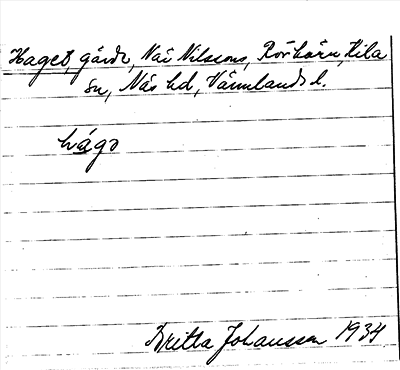 Haget, gårde, Nai Nilssons, Rörkärn, Kila
Sn, Näs hd, Värmlands l.
hágo
Britta Johansson 1934